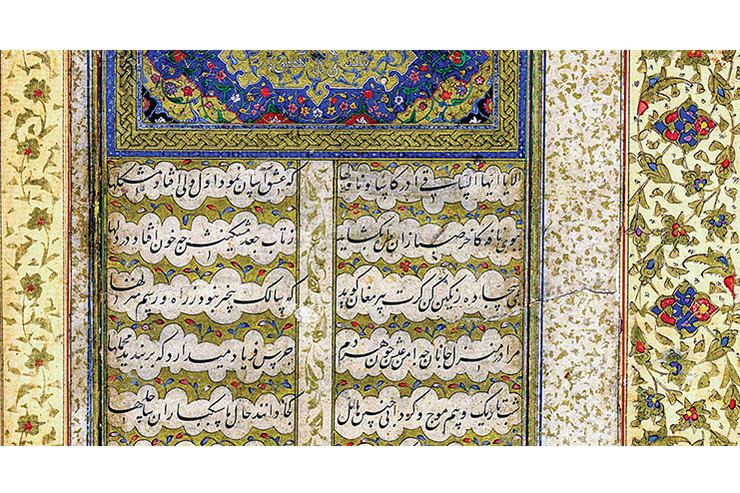 الا یا ایها الساقی ادر کاسا و ناولها که عشق آسان نمود اول ولی افتاد مشکلها
ببوی نافه کاخر صبا زان طره بگشاید ز تاب جعد مشکینش چه خون افتاد در دلها
بمی سجاده رنگین کن گرت پیر مغان گوید که سالک بیخبر نبود ز راه و رسم منزلها
مرا در منزل جانان چه امن عیش چون هر دم جرس فریاد میدارد که بربندید محملها
شب تاریک و بیم موج و گردابی چنین هایل کجا دانند حال ما سبکباران ساحلها